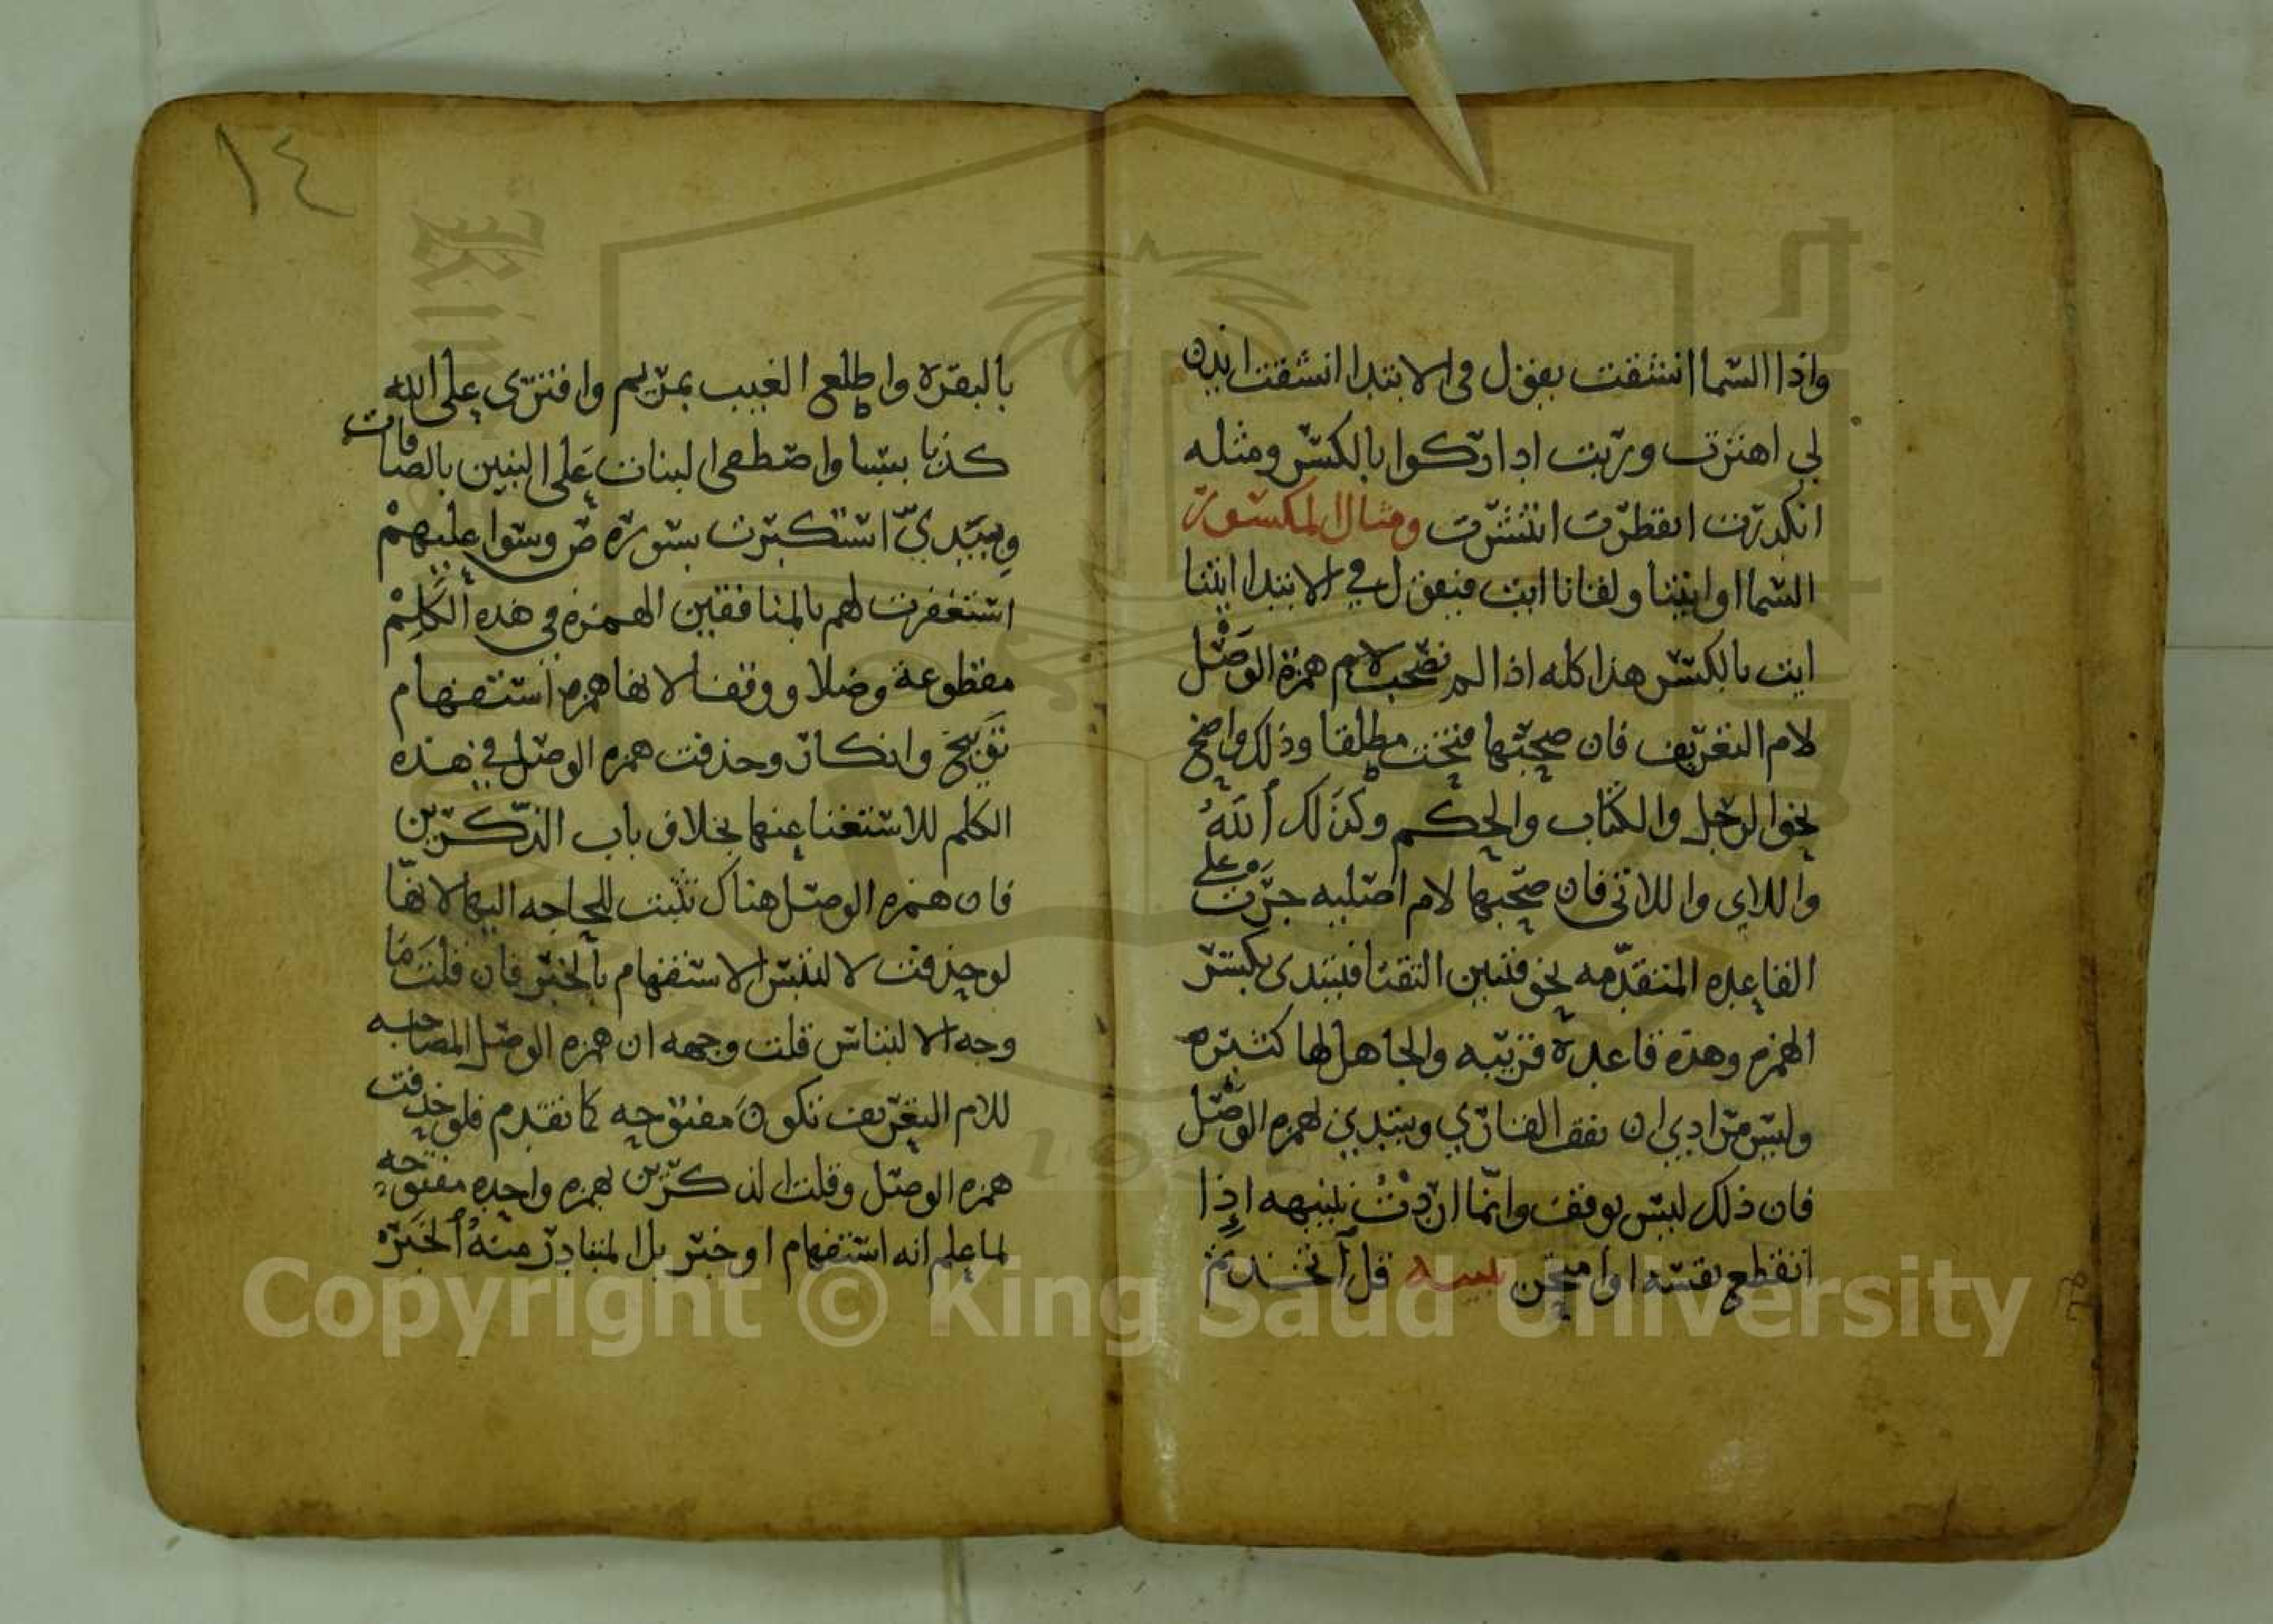 واذا السما انشقت يقول في الابتدا انشقت ايذن
لي اهتزت وربت اداركوا بالكسر ومثله
انكدرت انفطرت انتثرت ومثال المكسور
السما او ايتنا ولقانا ايت فيقول في الابتدا ايتنا
ايت بالكسر هذا كله اذا لم تصحب لام همزة الوصل
لام التعريف فان صحبتها فتحت مطلقا وذلك واضح
نحو الرجل والكتاب والحكم وكذلك الله
واللاي واللاتي فان صحبها لام اصليه جرت على
القاعده المتقدمه نحو فئتين التقتا فيبتدى بكسر
الهمزه وهذه قاعدة قريبه والجاهل لها كثيره
وليس مرادي ان يقف القاري ويبتدي بهمزه الوصل
فان ذلك ليس بوقف وانما اردت تنبيهه اذا
انقطع نفسه او امتحن تنبيه قل أتخذتم
١٤
بالبقره واطلع الغيب بمريم وافترى على الله
كذبا بسبا واصطفى البنات على البنين بالصافات
وبيدي استكبرت بسورة ص وسوا عليهم
استغفرت لهم بالمنافقين الهمزه في هذه الكلم
مقطوعة وصلا ووقفا لانها همزه استفهام
توبيخ وانكار وحذفت همزه الوصل في هذه
الكلم للاستغنا عنها بخلاف باب الذكرين
فان همزه الوصل هناك تثبت للحاجه اليها لانها
لو حذفت لالتبس الاستفهام بالخبر فان قلت ما
وجه الالتباس قلت وجهه ان همزه الوصل المصاحبه
للام التعريف تكون مفتوحه كما تقدم فلو حذفت
همزه الوصل وقلت الذكرين بهمزه واحده مفتوحه
لما علم انه استفهام او خبر بل المتبادر منه الخبر
Copyright © King Saud University